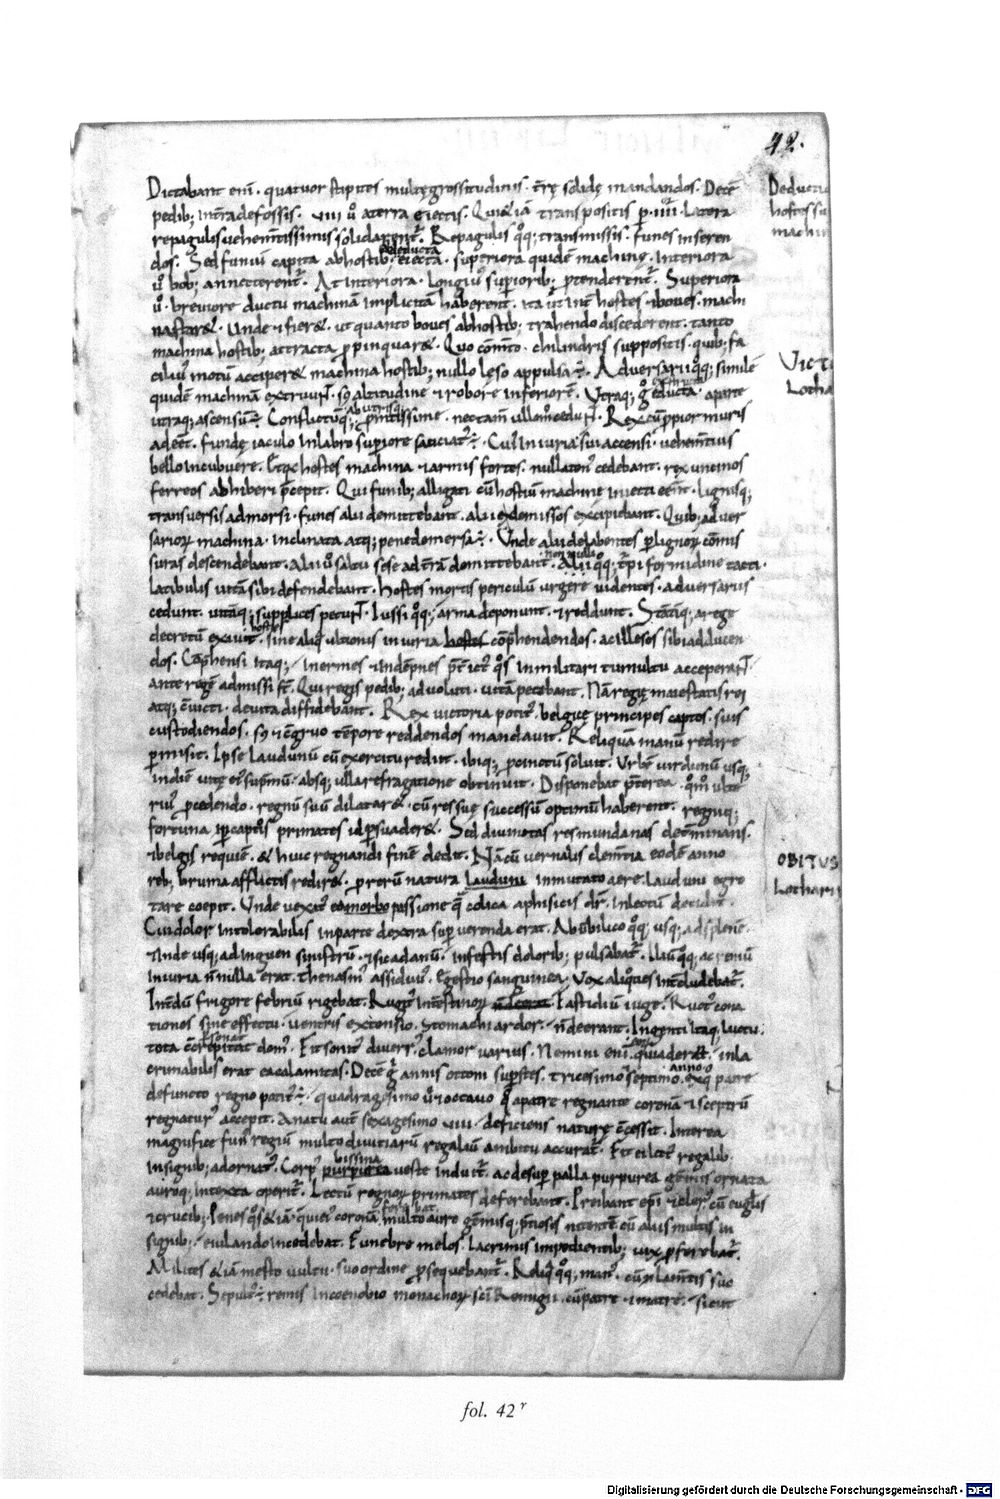 42.
Dictabant eni͂ · quatuor stipites multę grossitudinis · t̄rę solidę mandandos · Dece͂
pedib; int̄ra defossis · VIII u̾ a terra eiectis · Qui & ia͂ transpositis p̱ IIII · latera
repagulis uehem̄tissimis solidarent᷑. Repagulis q̊q; transmissis · funes inseren
dos. Sed funiu͂ capita ab hostib; eiecta · superiora quide͂ machinę · interiora
deducta
u̾ bob; annecterent᷑. At interiora · longius᷑ superiorib; p̱tenderent᷑. Superiora
u̾ · breuiore ductu machina͂ implicita͂ haberent · ita ut int̄ hostes & boues · machi
na staret. Unde & fieret · ut quanto boues ab hostib; trahendo discederent · tanto
machina hostib; attracta p̱pinquaret. Quo com̄to · chilindris suppositis · quib; fa
cilius᷑ motu͂ acciperet machina hostib; nullo lęso appulsa ÷. Aduersarii q̊q; simile͂
quide͂ machina͂ extruunt · sȝ altitudine & robore inferiore͂. Utraq; g̊ educta · a parte
exstructa
utraq; ascensu͂ ÷ Conflictu͂q; p̱mtissime · nec tam̄ ullo m̊ cedunt · Rex cu͂ p̱pior muris
ab utrisq;
adeē̄t · fundę iaculo in labro superiore sauciat᷑ ÷ · Cui᷑ iniuria sui accensi · uehem̄tius
bello incubuere. Et q̄a hostes machina & armis fortes · nullaten᷑ cedebant · rex uncinos
ferreos abhiberi p̄cepit. Qui funib; alligati cu͂ hostiu͂ machinę iniecti eēnt · lignisq;
transuersis admorsi · funes alii demittebant · alii & demissos excipiebant · Quib; aduer
sarioꝝ machina · inclinata atq; pene demersa ÷ Unde alii delabentes p̱ lignoꝝ co͂mis
suras descendebant · Alii u̾ saltu sese ad t̄ra͂ demittebant · Alii q̊q; t̄pi formidine tacti ·
nonnulli
latibulis uita͂ sibi defendebant · Hostes mortis periculu͂ urgere uidentes · aduersariis
cedunt · uita͂q; supplices petunt · Iussi q̊q; arma deponunt · & reddunt · Stati͂q; a rege
decretu͂ exiuit · sine aliq̊ ultionis iniuria hostes co͂p̄hendendos · ac illesos sibi adducen
hostes
dos. Co͂p̄hensi itaq; · inermes & inde͂pnes p̄t ict᷑ q̊s in militari tumultu acceperant
ante rege͂ admissi st̄ · Qui regis pedib; aduoluti · uita͂ petebant · Na͂ regię maiestatis rei
atq; c̄uicti · de uita diffidebant · Rex uictoria potit᷑ · belgicę principes captos · suis
custodiendos · sȝ & c̄gruo te͂pore reddendos mandauit · Reliqua͂ manu͂ redire
p̱misit. Ipse laudunu͂ cu͂ exercitu rediit · ibiq; p̱cinctu͂ soluit. Urbe͂ uirdunu͂ usq;
in die͂ uitę ei᷑ sup̄mu͂ · absq; ulla refragatione obtinuit · Disponebat p̄terea · q̊m̊ ulte
rius᷑ p̱cedendo · regnu͂ suu͂ dilataret · cu͂ res suę successu͂ optimu͂ haberent · regniq;
fortuna · p̱ captos primates id p̱suaderet. Sed diuinitas res mundanas det̄minans ·
& belgis requie͂ · & huic regnandi fine͂ dedit · Na͂ cu͂ uernalis clem̄tia eode͂ anno
reb; bruma afflictis rediret · p̱ reru͂ natura lauduni inmutato aere · lauduni egro
tare coepit · Unde uexat᷑ eo morbo passione q̄ colica a phisicis dr̄ · in lectu͂ decidit ·
Cui dolor intolorabilis in parte dextra sup̱ uerenda erat · Ab u͂bilico q̊q; usq; ad splene͂
& inde usq; ad inguen sinistru͂ · & sic ad anu͂ · infestis dolorib; pulsabat᷑ · Iliu͂ q̊q; ac reniu͂
iniuria n̄nulla erat · thenasm᷑ assiduus · Egestio sanguinea · Vox aliq̊ties int̄cludebat᷑ ·
Int̄du͂ frigore febriu͂ rigebat · Rugit᷑ intestinoꝝ · Fastidiu͂ iuge · Ructat᷑ cona
tiones sine effectu · uentris extensio · stomachi ardor · n̄ deerant · Ingenti itaq; luctu ·
tota c̄crepitat dom᷑ · Fit sonit᷑ diuers᷑ · clamor uarius · Nemini eni͂ · qui aderat · inla
crimabilis erat ea calamitas · Dece͂ g̊ annis ottoni sup̱stes · tricesimo septimo · ex q̊ patre
anno
defuncto regno potit᷑ ÷ quadragesimo u̾ & octauo q̊ a patre regnante corona͂ & sceptru͂
regnatur᷑ accepit · A natu aut̄ sexagesimo VIII · deficiens naturę c̄cessit. Interea
magnifice fun᷑ regiu͂ multo diuitiaru͂ regaliu͂ ambitu accurat᷑ · Fit ei lect᷑ regalib·
insignib; adornat᷑ · Corp᷑ purpurea ueste induit᷑ · ac desup̱ palla purpurea gem̄is ornata
bissina
auroq; intexta operit᷑ · Lectu͂ regnoꝝ primates deferebant · Preibant ep̄i & cler᷑ cu͂ euglīis
& crucib; · Penes q̊s & ia͂ qui ei᷑ corona͂ multo auro gem̄isq; p̄ciosis nitente͂ cu͂ aliis multis in
ferebat
signib; · eiulando incedebat · Funebre melos · lacrimis impedientib; uix p̱ferebat᷑ ·
Milites & ia͂ mesto uultu · suo ordine p̱sequebant᷑ · Reliq̊ q̊q; man᷑ · cu͂ lam̄tis suo
cedebat · Sepult᷑ ÷ remis in coenobio monachoꝝ sc̄i Remigii · cu͂ patre & matre · sicut
Deductio
hostes su
machin
Victo
lotha
OBITUS
Lotharii
fol. 42r
Digitalisierung gefördert durch die Deutsche Forschungsgemeinschaft - DFG